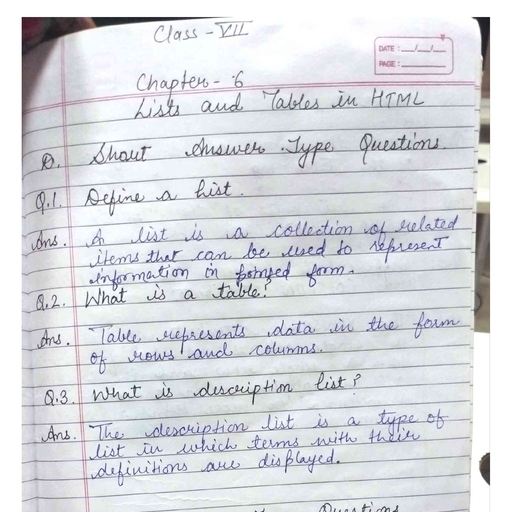 Class - VII
DATE : __/__/__
PAGE : ________
Chapter - 6
Lists and Tables in HTML
D. Shout Answer Type Questions
Q.1. Define a list.
Ans. A list is a collection of related
items that can be used to represent
information in
form.
Q.2. What is a table?
Ans. Table represents data in the form
of rows and columns.
Q.3. What is description list?
Ans. The description list is a type of
list in which terms with their
definitions are displayed.
Questions